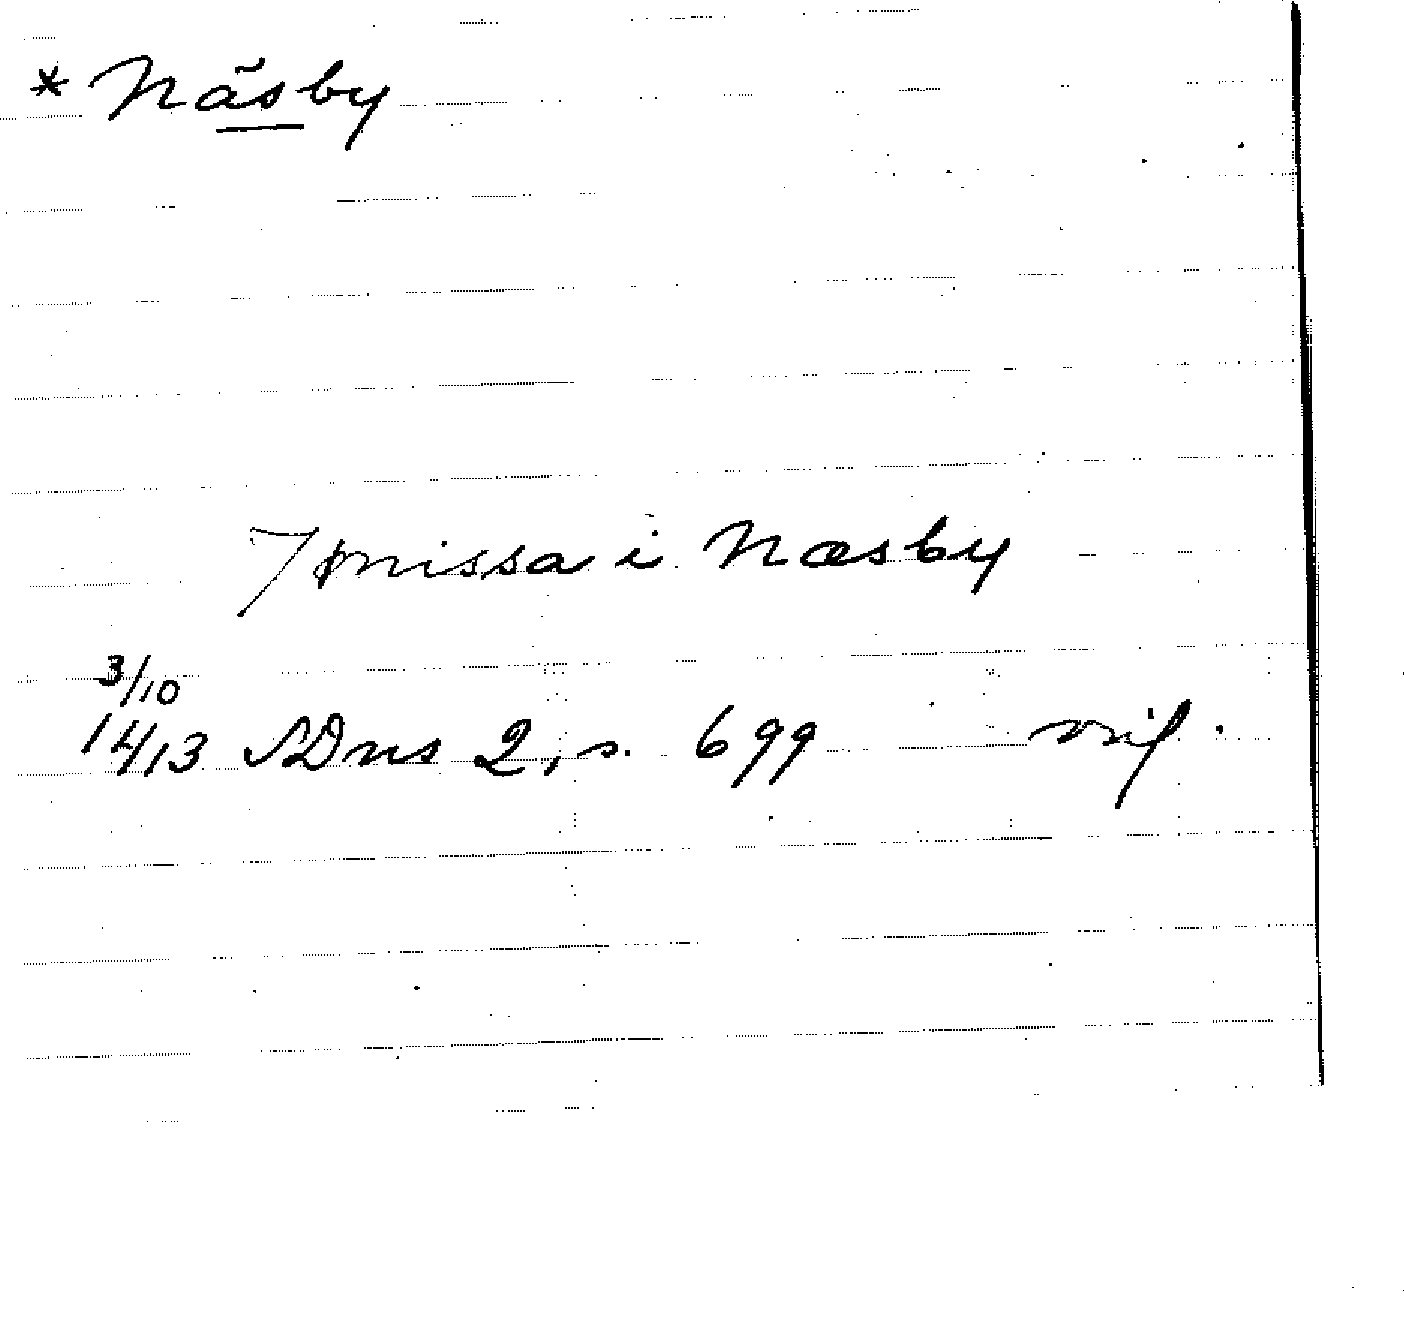 * Näsby
Jønissa i Næsby
3/10
1413 SDns 2, s. 699 orig.